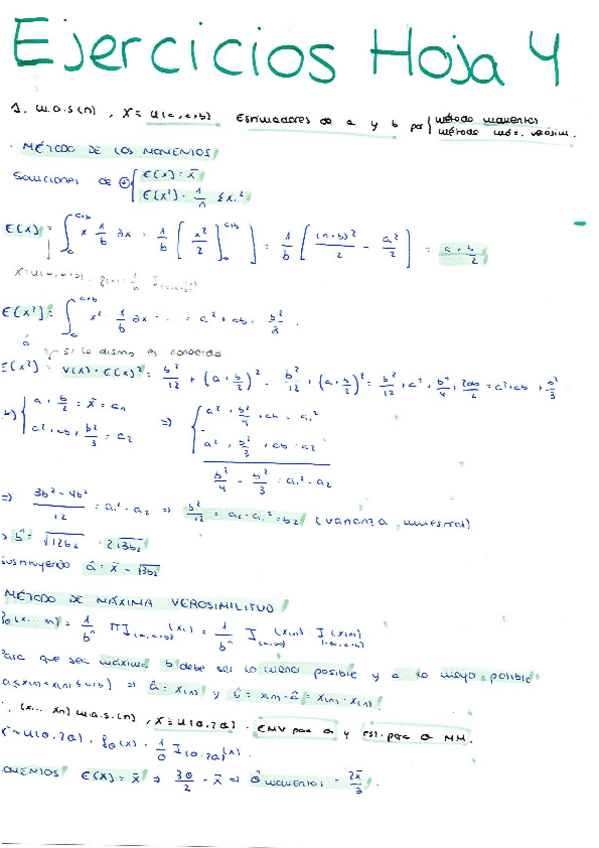 Ejercicios Hoja 4
1. m.a.s(n), X ≡ U(a, a+b) Estimadores de a y b por { método momentos
método máx. verosim.
· MÉTODO DE LOS MOMENTOS
Soluciones de { E(X) = x̄
E(X²) = 1/n Σx_i²
E(X) = ∫_a^{a+b} x 1/b dx = 1/b [x²/2]_a^{a+b} = 1/b [(a+b)²/2 - a²/2] = a + b/2
E(X²) = ∫_a^{a+b} x² 1/b dx = ... = a² + ab + b²/3.
ó si la dismo es conocida
E(X²) = V(X) + E(X)² = b²/12 + (a + b/2)² = b²/12 + (a + b/2)² = b²/12 + a² + b²/4 + 2ab/2 = a² + ab + b²/3
{ a + b/2 = x̄ = a₁ ⇒ { a² + b²/4 + ab = a₁²
a² + ab + b²/3 = a₂ a² + b²/3 + ab = a₂
b²/4 - b²/3 = a₁² - a₂
⇒ 3b² - 4b²/12 = a₁² - a₂ ⇒ b²/12 = a₂ - a₁² = b₂ (varianza muestral)
b̂ = √12b₂ = 2√3b₂
sustituyendo â = x̄ - √3b₂
MÉTODO DE MÁXIMA VEROSIMILITUD
1/bⁿ Π I_(a, a+b) (x_i) = 1/bⁿ
Para que sea máxima b debe ser lo menor posible y a lo mayor posible
⇒ â = x(1) y b̂ = x(n) - â = x(n) - x(1).
(x₁... xn) m.a.s.(n), X ≡ U(θ, 2θ). EMV para θ y est. para θ MM.
X ~ U(θ, 2θ), f_θ(x) = 1/θ I_(θ, 2θ) (x).
MOMENTOS E(X) = x̄ ⇒ 3θ/2 = x̄ ⇒ θ̂ momentos = 2x̄/3.